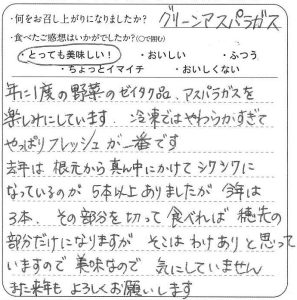 ・何をお召し上がりになりましたか? グリーンアスパラガス
・食べたご感想はいかがでしたか?(○で囲む)
・とっても美味しい! ・おいしい ・ふつう
・ちょっとイマイチ ・おいしくない
年に1度の野菜のゼイタク品、アスパラガスを
楽しみにしています。冷凍ではやわらかすぎて
やっぱりフレッシュが一番です
去年は根元から真ん中にかけてシワシワに
なっているのが5本以上ありましたが今年は
3本、その部分を切って食べれば穂先の
部分だけになりますが そこはわけありと思って
いますので美味なので 気にしていません
また来年もよろしくお願いします